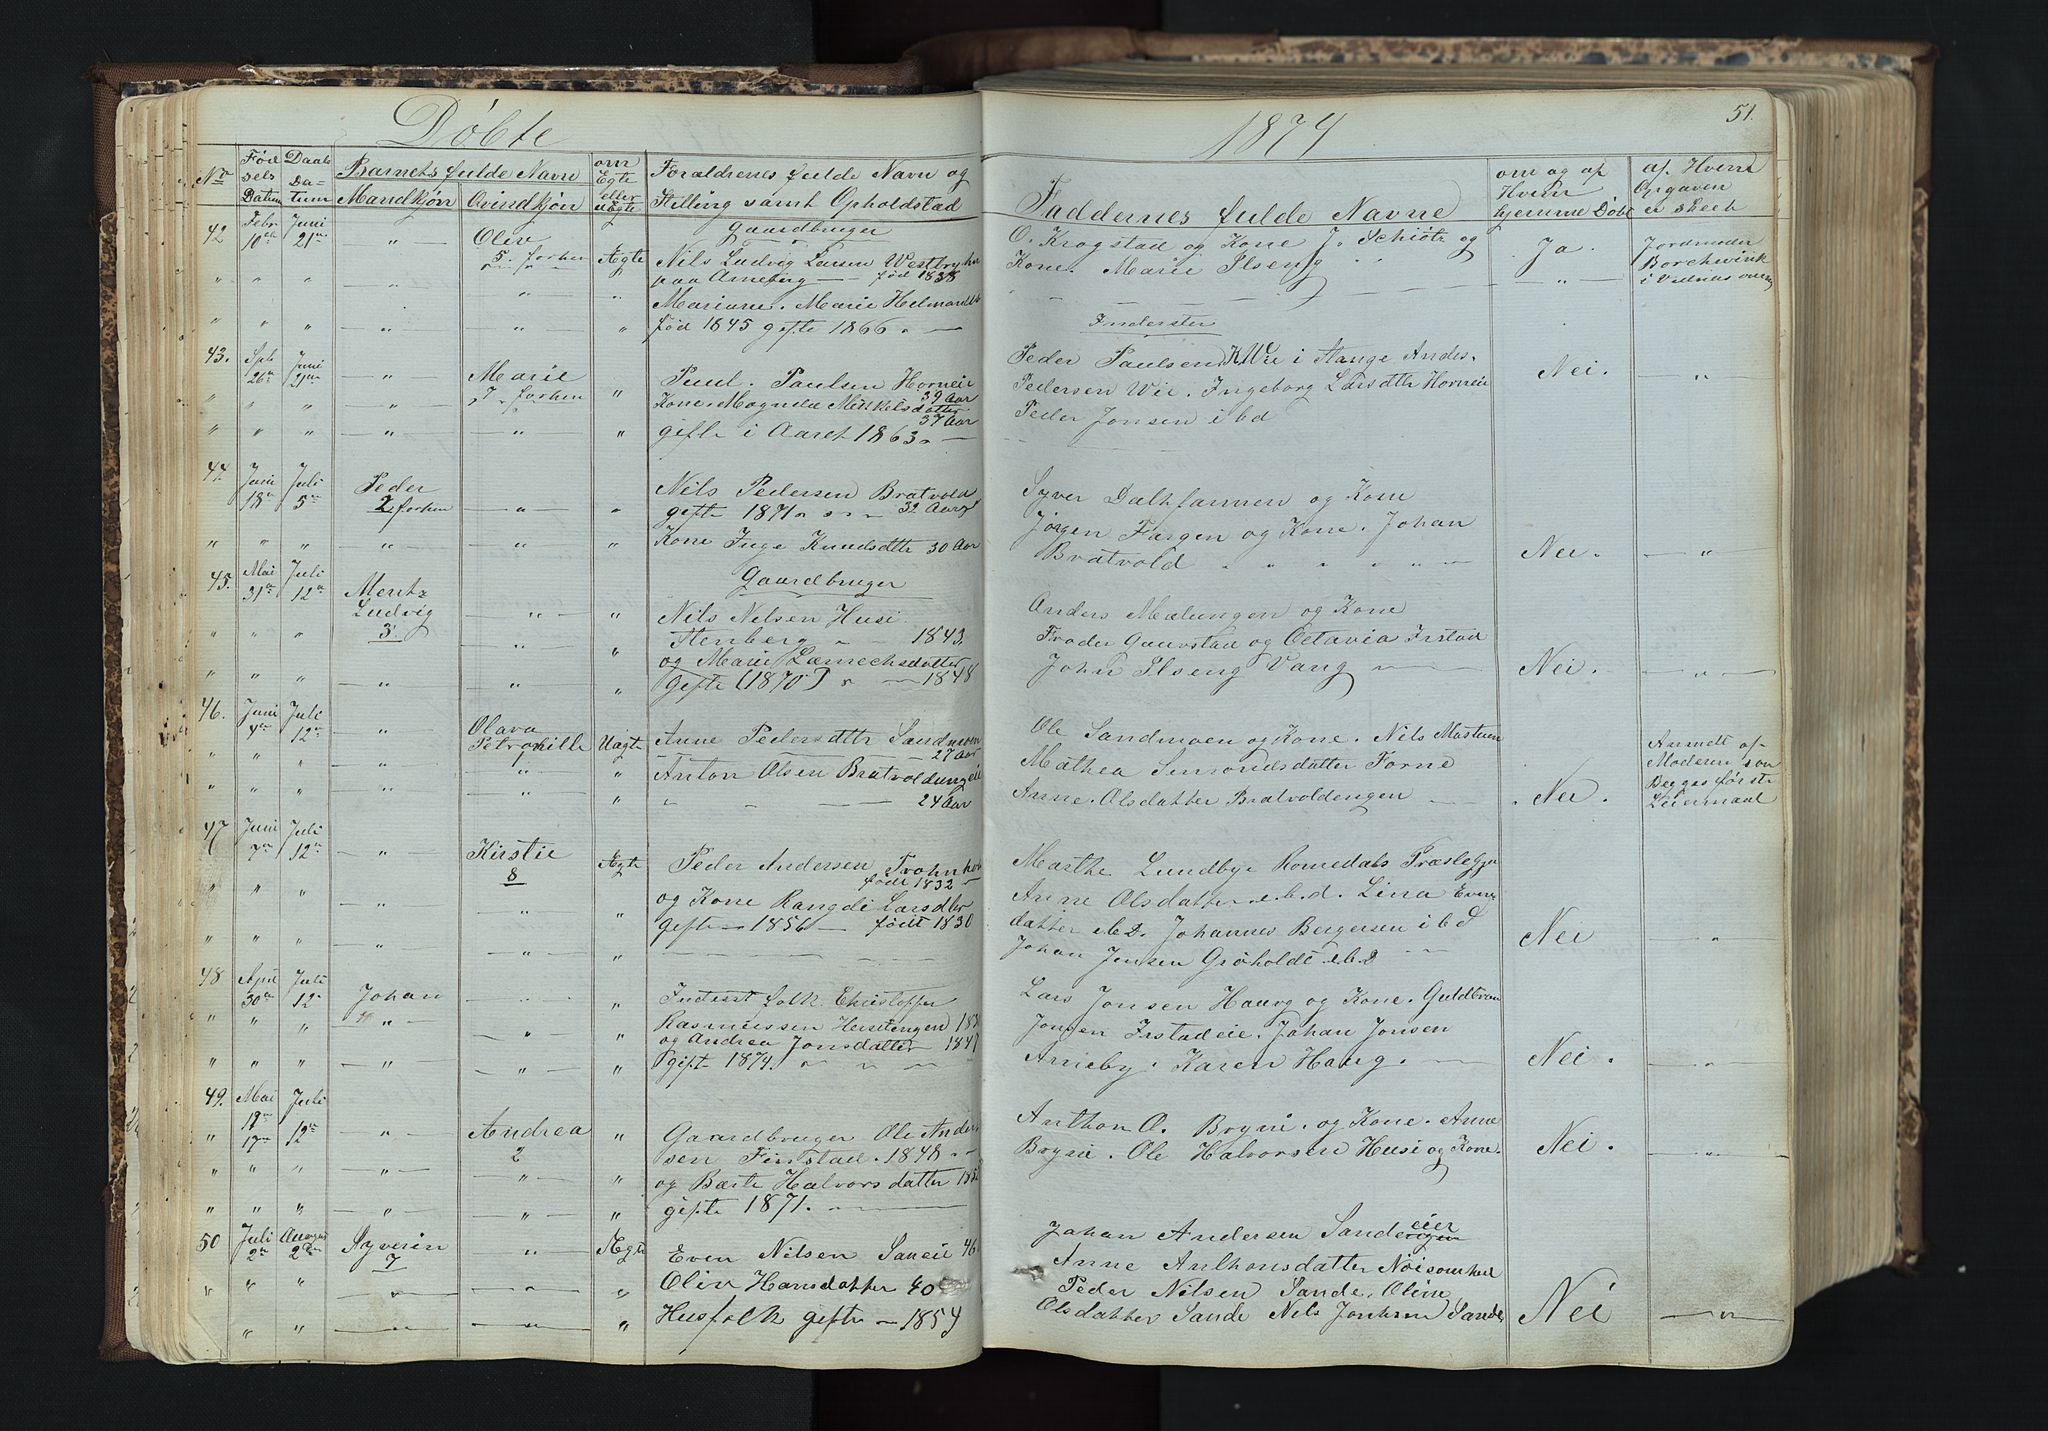 Døbte
1874
51.
No Fødsels Datum Daabs Datum Barnets fulde Navn Mandkjøn Qvindkjøn om Ægte eller uægte Forældrenes fulde Navn og Stilling samt Opholdstad
Faddernes fulde Navne om og af Hvem hjemme Døbt af Hvem Opgaven er skeet
42 Febr 10de Juni 21de " Oliv Gaardbruger
5. forhen Ægte Nils Ludvig Larsen
paa Arneberg — født 1838
Mariane. Marie
fød 1845 gifte 1866
O. Krogstad og Kone J. Schiøtz og
Kone. Marie Ilseng
Ja. Jordmoder
Borchrevink
i Vednas
43. Juni 21de " Marie
7 forhen " Poul. Paulsen Horneie
39 Aar
Kone. Magnda Mikkelsdatter
37 Aar
gifte i Aaret 1863
Inderster
Peder Paulsen Wie i Stange Andes.
Pedersen Wie. Ingeborg Larsdttr Horneie
Peder Jonsen i bd
Nei. "
44. Juni 18de Juli 5te Peder
2 forhen " Nils Pedersen Bratvold
gifte 1871 32 Aar
Kone Inge Knudsdttr 30 Aar
Syver og Kone
Jørgen Fargen og Kone. Johan
Bratvold
Nei. "
45. Mai 31de Juli 12te Mentz
Ludvig
3. Gaardbruger
Nils Nelsen Husi
Stenberg 1843.
og Marie Lamechsdatter
gifte (1870) 1848
Anders Mælungen og Kone
Frader Gaustad og Octavia Irstad
John Ilseng Vang
Nei. "
46. Juni 4de Juli 12te " Olava
Petronille
1 Uægte Anne Pedersdttr Sandmoen
27 Aar
Anton Olsen Bratvoldengeie
24 Aar
Ole Sandmoen og Kone. Nils
Mathea Simonsdatter Forne
Anne. Olsdatter Bratvoldengen
Nei. Anmelt af
Moderen
Begges første
Leiermaal
47 Juni 7de Juli 12te " Kirstie
8 Ægte Peder Andersen
født 1832
og Kone Rangdi Larsdtr
gifte 1856 født 1830
Marthe Lundbye Romedals Præstegj
Anne Olsdatter i.b.d. Lina Even
datter i.b.d. Johannes Bergersen i b d
Johan Jensen Grøholdt i.b.d
Nei "
48 April 30de Juli 12te Johan
4 " Inderst folk Christopher
Rasmussen Husiengen
og Andrea Jonsdatter 1847
gift 1874.
Lars Jonsen Haug og Kone. Guldbran
Jonsen Irstadeie. Johan Jonsen
Arneby. Karen Haug.
Nei. "
49. Mai 17de Juli 12te " Andrea
2 " Gaardbruger Ole Ander
sen Finstad. 1848
og Berte Halvorsdatter
gifte 1871.
Anthon O. Bryni. og Kone. Anne
Bryni. Ole Halvorsen Husi og Kone.
Nei. "
50 Juli 2de August 2den Syverin
7 " Ægte Even Nilsen Saneie 46
Oliv Hansdatter 40
Husfolk gifte 1854
Johan Andersen Sandeeier
Anne Anthonsdatter
Peder Nilsen Sande. Oline
Olsdatter Sande Nils Sande
Nei "